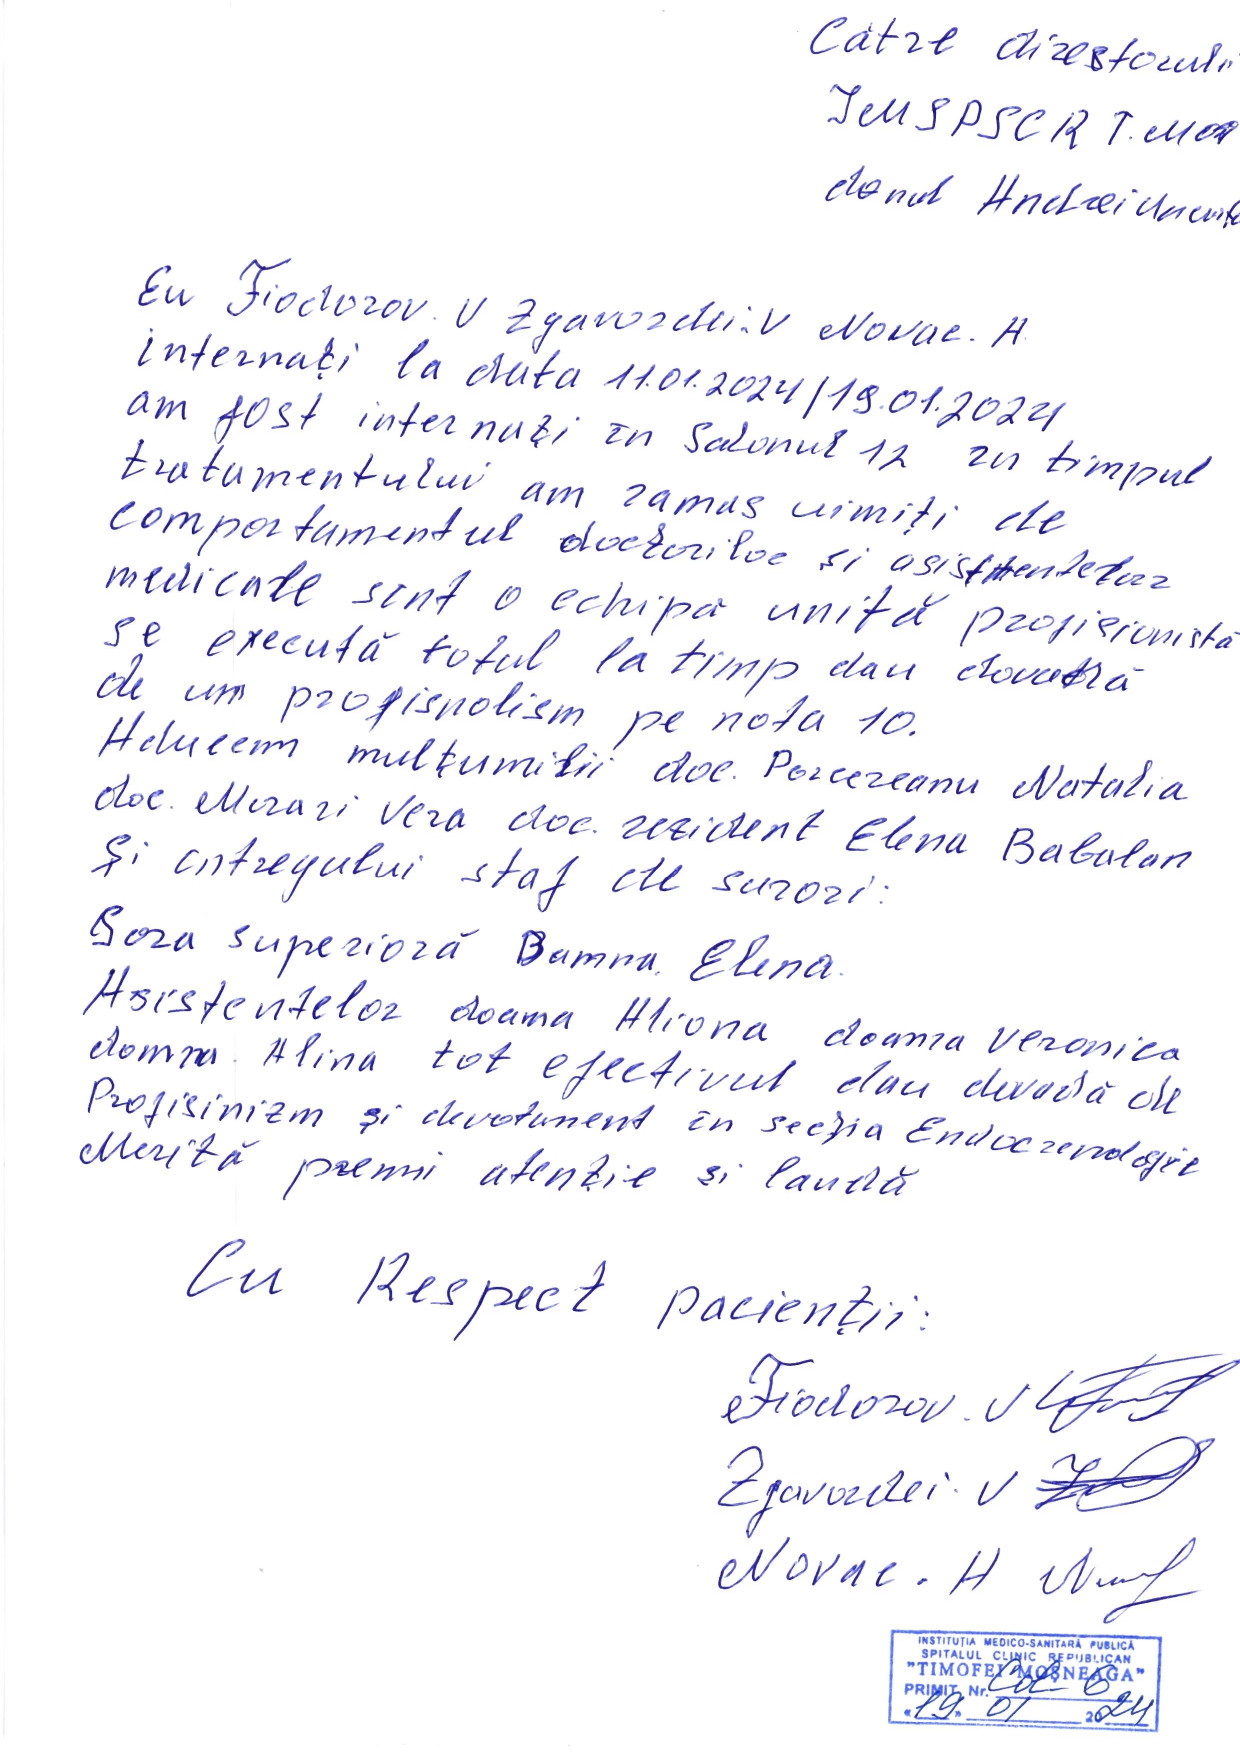 Către direstorului
IMSPSCR T. Moș
domul Andrei
Eu Fiodorov. V Zgavordei. V Novac. A
internați la data 11.01.2024/19.01.2024
am fost internați în Salonul 12 în timpul
tratamentului am ramas uimiți de
comportamentul doctorilor și asistentelor
medicale sînt o echipă unită profisionistă
se execută totul la timp dau dovadă
de um profisnolism pe nota 10.
Aducem mulțumirii doc. Porcereanu Natalia
doc. Morari Vera doc. rezident Elena Babalan
Și întregului staf de surori:
Sora superioră Bamna. Elena.
Asistentelor doama Aliona doama Veronica
domna. Alina tot efectivul dau dovadă de
Profisinizm și devotament în secția Endocrenologie
Merită premii atenție și laudă
Cu Respect pacienții:
Fiodorov. V
Zgavordei. V
Novac. A
INSTITUȚIA MEDICO-SANITARĂ PUBLICĂ
SPITALUL CLINIC REPUBLICAN
"TIMOFEI MOȘNEAGA"
PRIMIT Nr. Col-6
"19" 01 2024